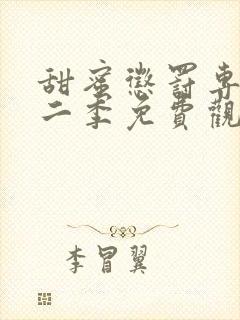 甜蜜懲罰專
二季免費觀
李冒翼